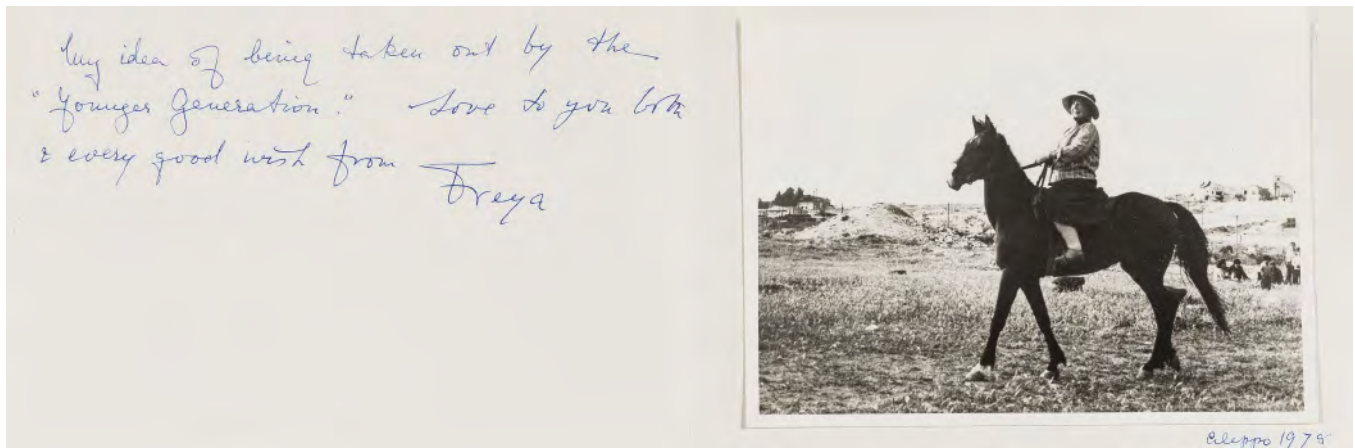 My idea of being taken out by the
"Younger Generation." Love to you both
& every good wish from
Freya
Aleppo 1978